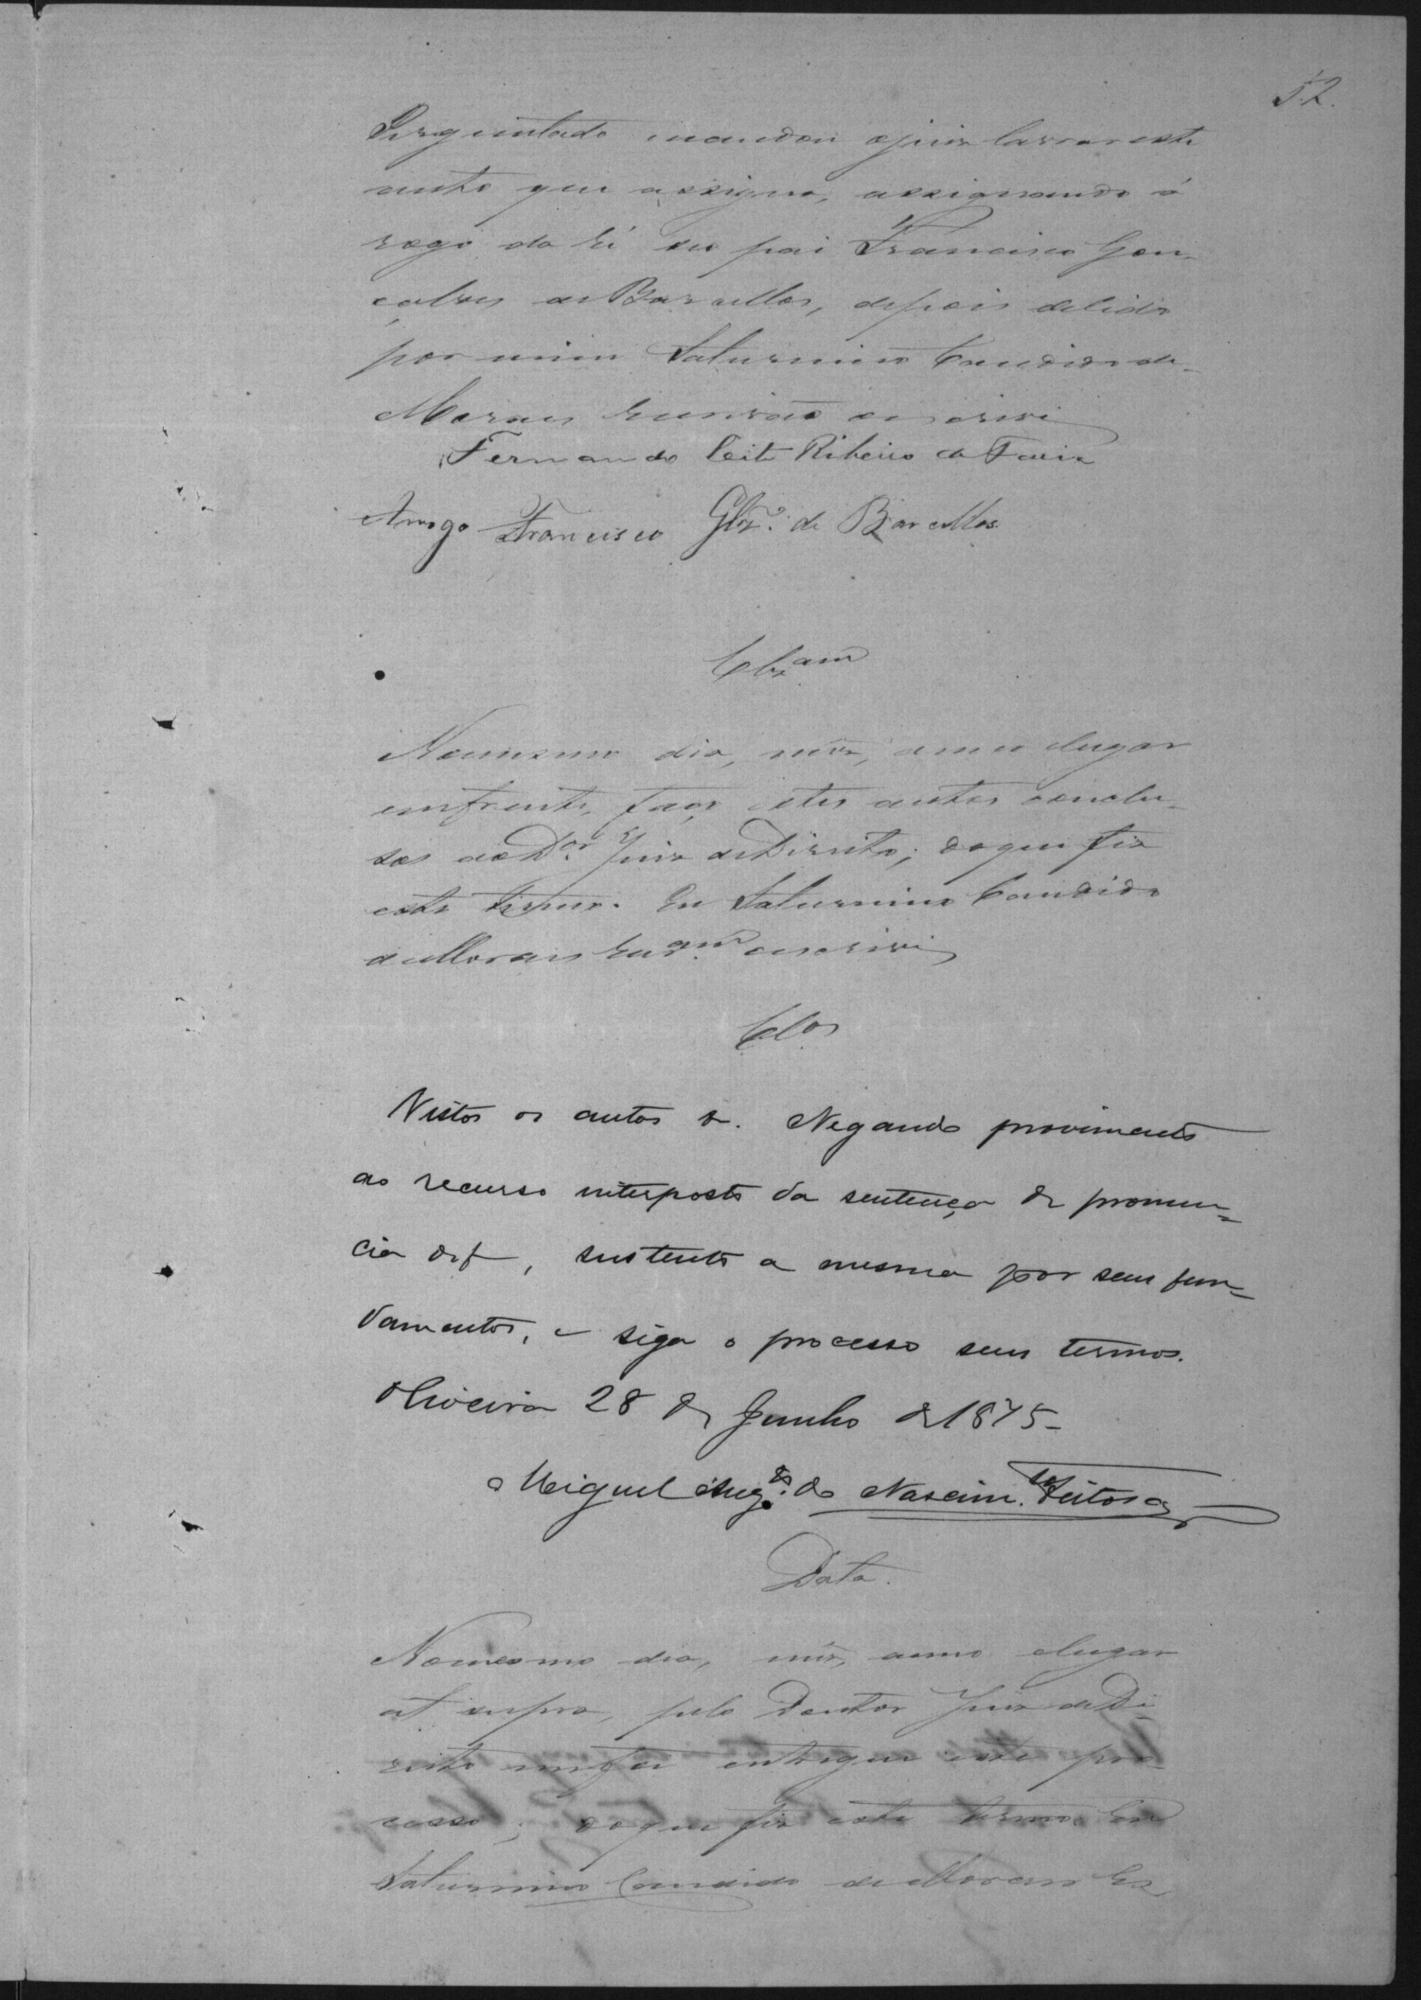 52.
Perguntado mandou o juiz lavrar este
auto que assigna, assignando á
rogo da ré seu pai Francisco Gon-
çalves de Barcellos, depois de lido
por mim Saturnino Candido de
Moraes Escrivão o escrivi
Fernando Leite Ribeiro de Faria
Arrogo Francisco Glz. de Barcellos
Clzam
No mesmo dia, mez, anno e lugar
em frente, faço estes autos conclu-
sos ao Dor. Juiz de Direito; do que fiz
este termo. Eu Saturnino Candido
de Moraes Escram. o escrivi
Clos
Vistos os autos &. Negando provimento
ao recurso interposto da sentença de pronun=
cia de f , sustento a mesma por seus fun=
damentos, e siga o processo seus termos.
Oliveira 28 de Junho de 1875-
Miguel Augto. do Nascimto. Feitosa
Data.
No mesmo dia, mez, anno e lugar
ut supra, pelo Doutor Juiz de Di-
reito me foi entregue este pro-
cesso; do que fiz este termo. Eu
Saturnino Candido de Moraes Es